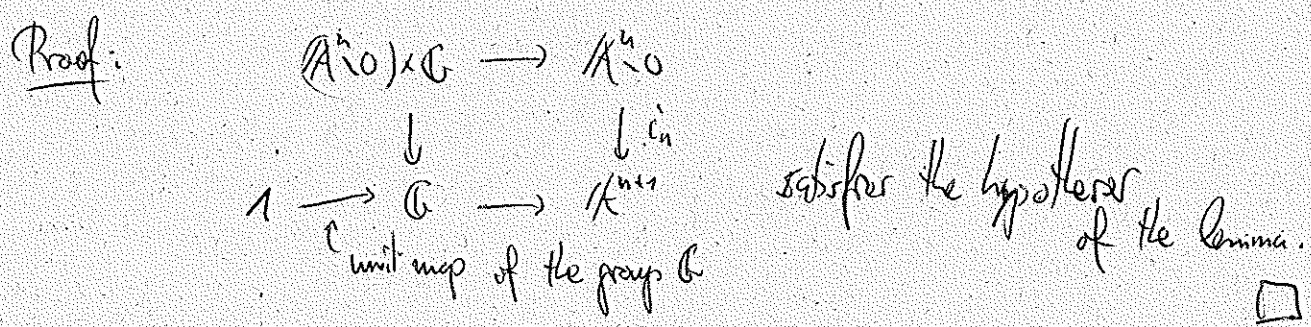 Proof: (𝔸ⁿ∖0)×G ⟶ 𝔸ⁿ∖0
↓ ↓ iₙ
1 ⟶ G ⟶ 𝔸ⁿ⁺¹ satisfies the hypotheses
of the lemma.
unit map of the group G
□